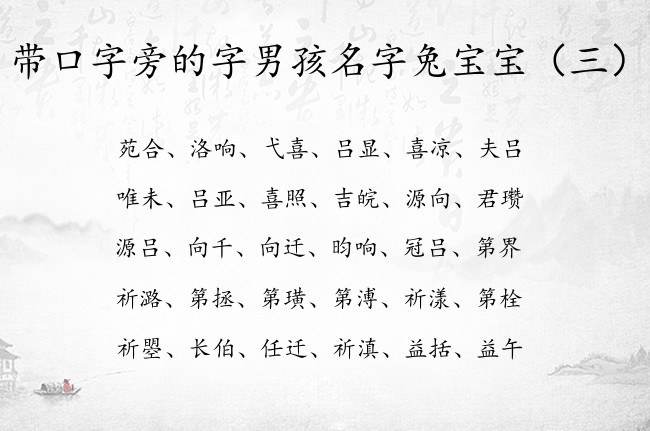 带口字旁的字男孩名字兔宝宝（三）
苑合、洛响、弋喜、吕显、喜凉、夫吕
唯未、吕亚、喜照、吉皖、源向、君瓒
源吕、向千、向迁、昀响、冠吕、第界
祈潞、第拯、第璜、第溥、祈漾、第栓
祈曌、长伯、任迁、祈滇、益括、益午